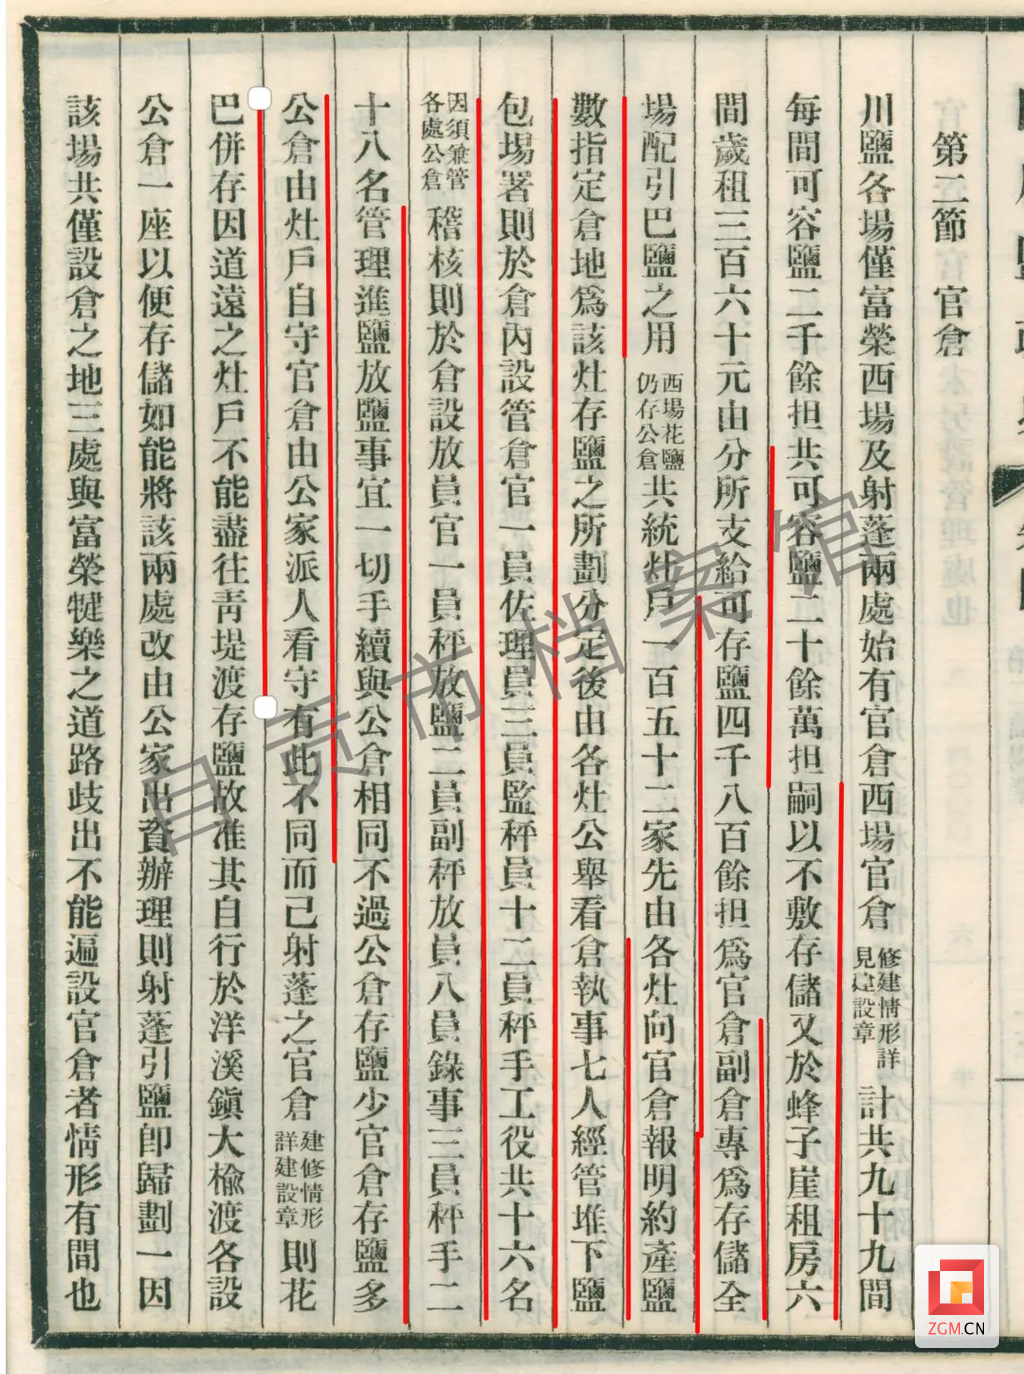 第二節官倉
川鹽各場僅富榮西場及射蓬兩處始有官倉西場官倉修建情形詳見建設章計共九十九間
每間可容鹽二千餘担共可容鹽二十餘萬担嗣以不敷存儲又於蜂子崖租房六
間歲租三百六十元由分所支給可存鹽四千八百餘担爲官倉副倉專爲存儲全
場配引巴鹽之用西場花鹽仍存公倉共統灶戶一百五十二家先由各灶向官倉報明約產鹽
數指定倉地爲該灶存鹽之所劃分定後由各灶公舉看倉執事七人經管堆下鹽
包場署則於倉內設管倉官一員佐理員三員監秤員十二員秤手工役共十六名
因須兼管各處公倉稽核則於倉設放員官一員秤放鹽二員副秤放員八員錄事三員秤手二
十八名管理進鹽放鹽事宜一切手續與公倉相同不過公倉存鹽少官倉存鹽多
公倉由灶戶自守官倉由公家派人看守有此不同而已射蓬之官倉建修情形詳建設章則花
巴併存因道遠之灶戶不能盡往青堤渡存鹽故准其自行於洋溪鎭大楡渡各設
公倉一座以便存儲如能將該兩處改由公家出資辦理則射蓬引鹽卽歸劃一因
該場共僅設倉之地三處與富榮犍樂之道路歧出不能遍設官倉者情形有間也
自贡市档案馆
ZGM.CN